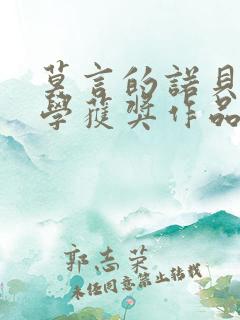 莫言的諾貝
學獲獎作品
郭志荣
未经同意禁止转载